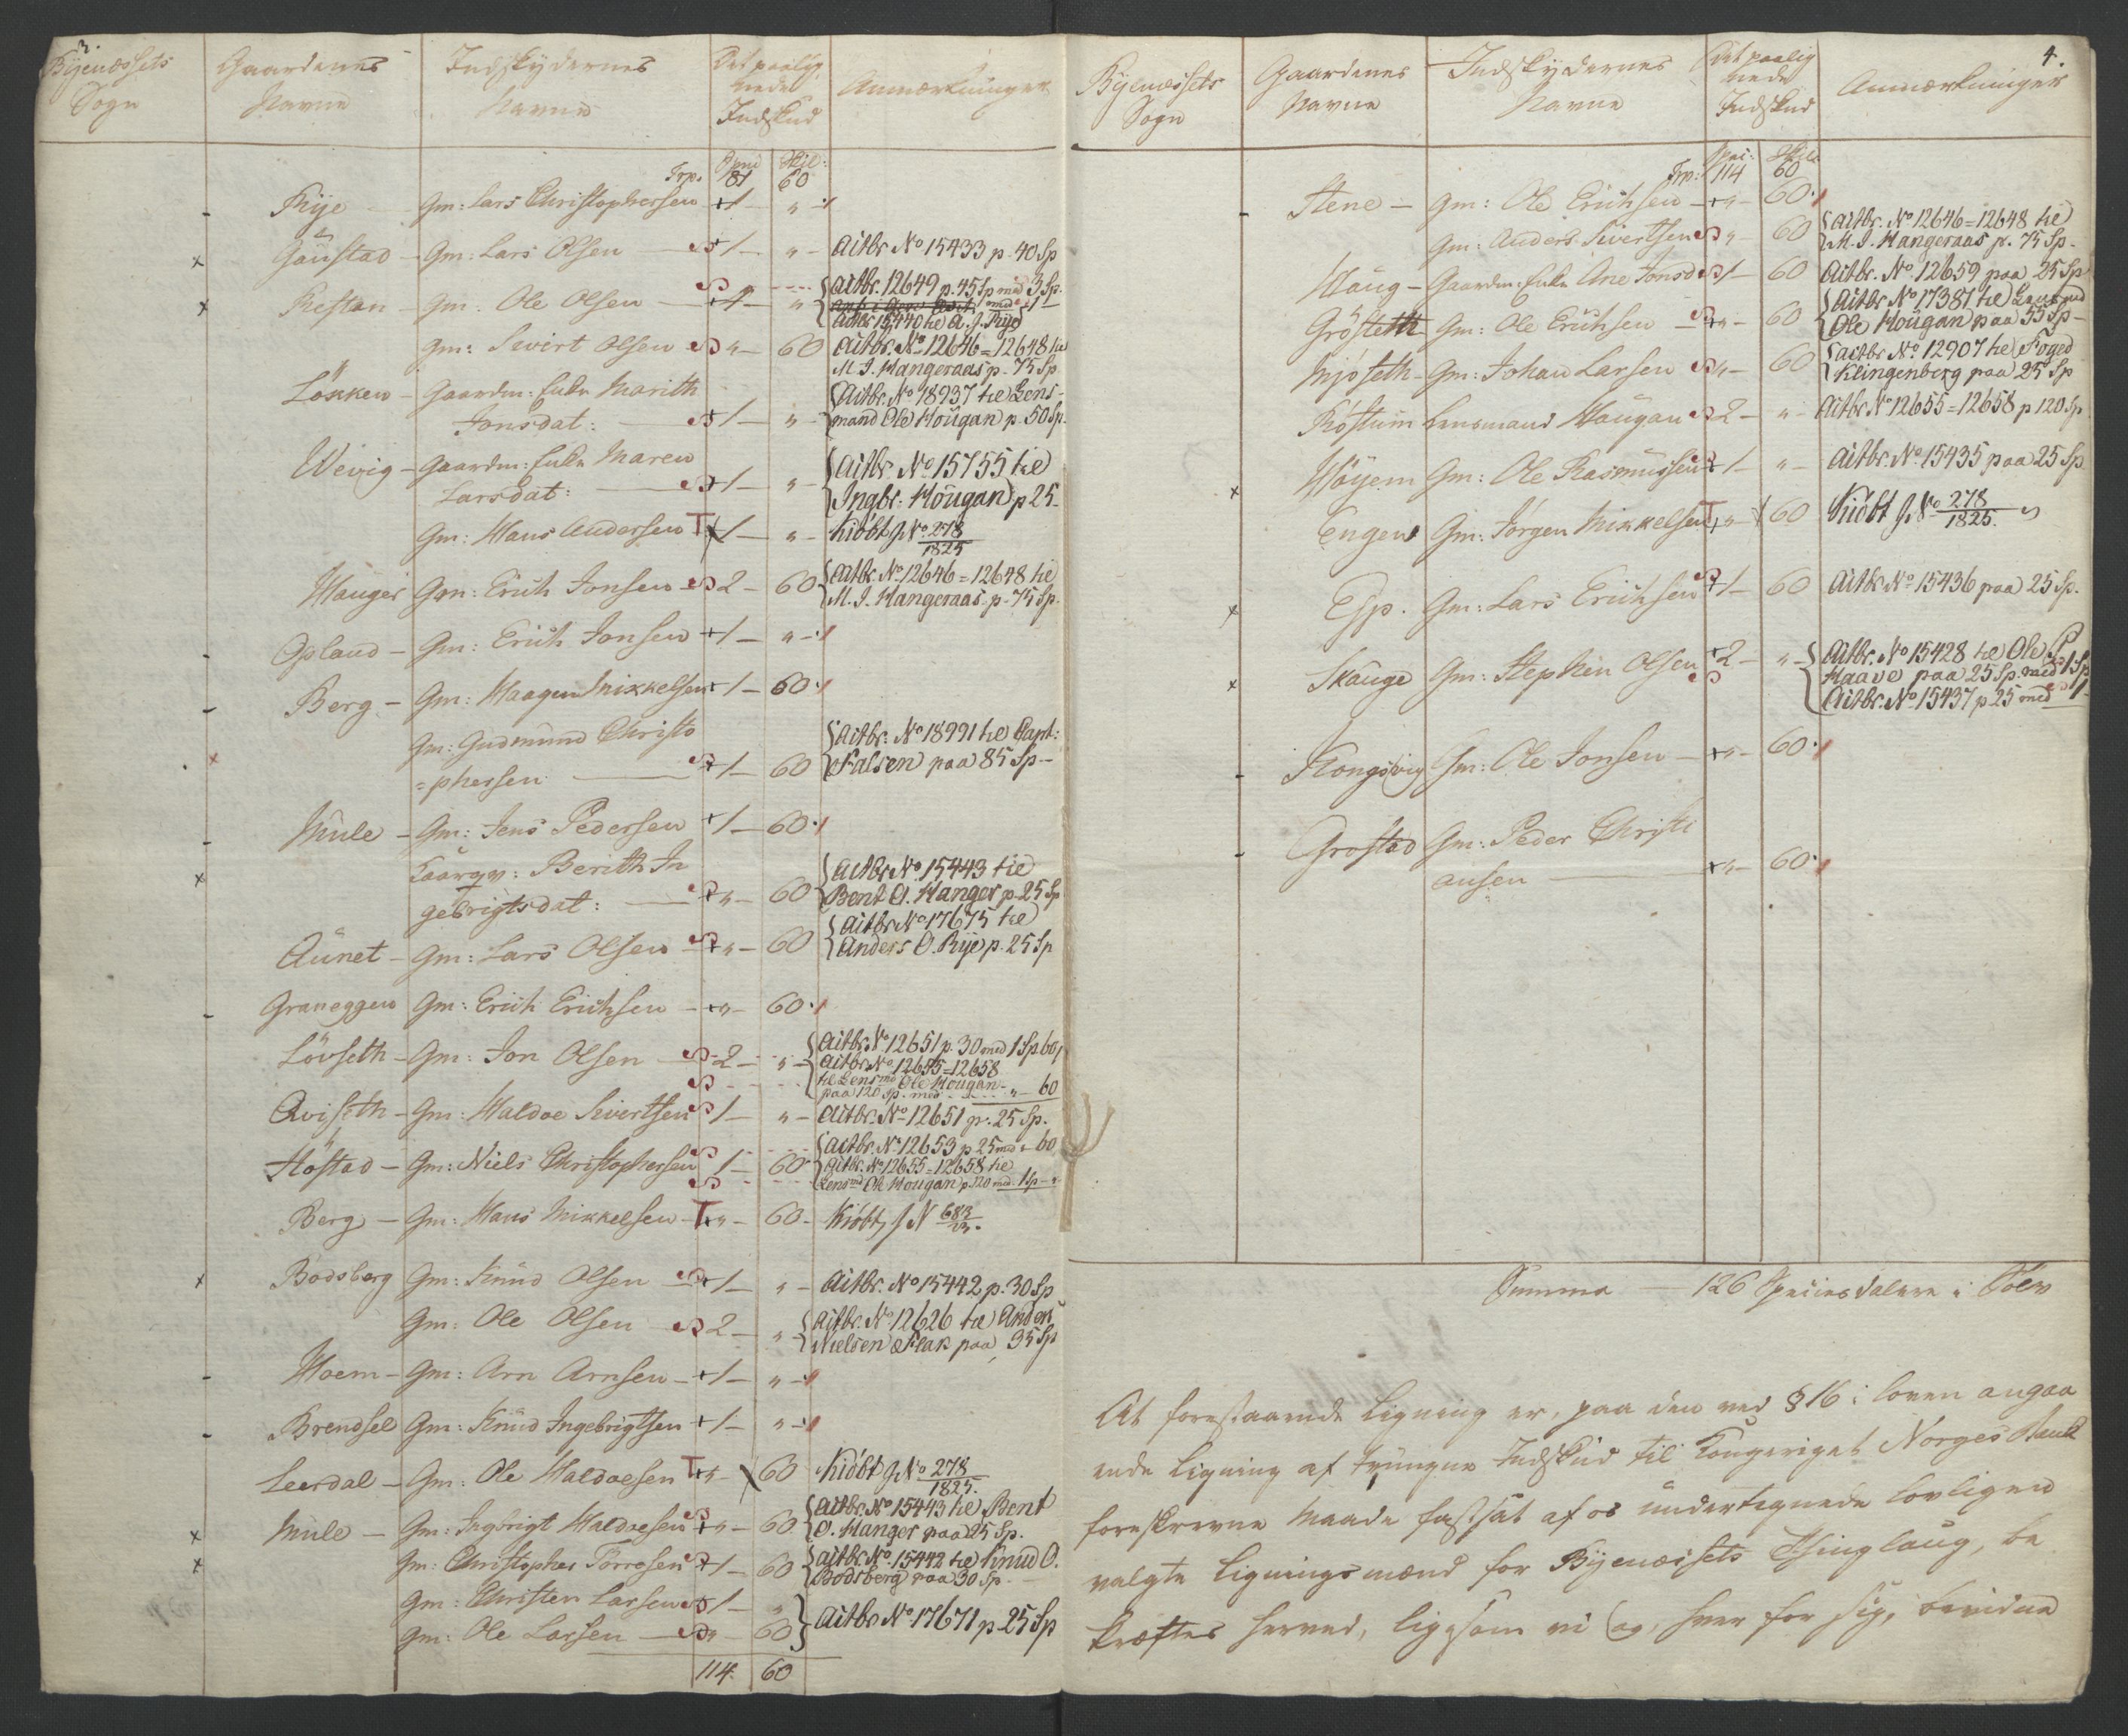 3.
Bÿenæssets Sogn | Gaardenes Navne | Indskydernes Navne | Det paalig nede Indskud | Anmærkninger
Trp. | Spec 81 | Skil: 60
Rÿe — Gm: Lars Christophersen + 1 — " -
Gaustad — Gm: Lars Olsen — 1 — " — Actbr No 15433 p. 40 Sp
Restan — Gm. Ole Olsen — 4 — " { Actbr. 12649 p. 45 Sp med 3 Sp.
med 1 —
Actbr 15440 til A. J. Rÿe
Gm: Sivert Olsen " — 60 Actbr. No 12646 = 12648 til
M. J. Hangeraas p. 75 Sp
Löxken — Gaardm: Enke Marith
Jonsdat: — 1 — " — { Actbr. No 18937 til Lens-
mand Ole Hougan p. 50 Sp.
Wevig — Gaardm: Enke Maren
Larsdat: — 1 — " — { Actbr No 15755 til
Ingbr. Hougan p 25-
Gm: Hans Andersen T 1 — " — Kiöbt J No 278/1825
Hanger Gm: Erich Jonsen 2 — 60 { Actbr. No 12646 = 12648 til
M. J. Hangeraas p. 75 Sp.
Opland — Gm: Erich Jonsen + 1 — " -
Berg — Gm: Haagen Mikkelsen + 1 — 60
Gm: Gudmund Christo
=phersen — 1 — 60 { Actbr. No 18991 til Capt:
Falsen paa 85 Sp —
Mule — Gm: Jens Pedersen + 1 — 60
Berith In
gebrigtsdat: — " — 60 { Actbr No 15443 til
Bent O. Hanger p. 25 Sp
Aünet — Gm: Lars Olsen — " — 60 { Actbr No 17675 til
Anders O. Rÿe p. 25 Sp
Graneggen Gm: Erich Erichsen — + " — 60
Lövseth — Gm: Jon Olsen 2 — " — { Actbr. No 12651 p. 30 med 1 Sp 60
Actbr. No 12655 = 12658
til Lensmd Ole Hougan
paa 120 Sp. med " — 60
Aviseth — Gm: Haldoe Sivertsen 1 — " — Actbr. No 12651 p. 25 Sp.
Höstad — Gm: Niels Christophersen 1 — 60 { Actbr. No 12653 p 25 med " 60
Actbr. No 12655 = 12658 til
Lensmd Ole Hougan p. 120 md. 1 Sp — "
Berg — Gm: Hans Mikkelsen T " — 60 — Kiöbt J N 683/23.
Bodsberg Gm: Knud Olsen + 1 — " — Actbr. No 15442 p. 30 Sp
Gm: Ole Olsen 2 — " — { Actbr. No 12626 til Anders
Nielsen Flak paa 35 Sp
Hoem — Gm: Arn Arnsen + 1 — " -
Brendsel Gm: Knud Ingebrigtsen + 1 — " -
Leerdal — Gm: Ole Haldoesen T " — 60 Kiöbt J No 278/1825.
Mule — Gm: Ingbrigt Haldoesen " — 60 { Actbr. No 15443 til Bent
O. Hanger paa 25 Sp.
Gm: Christopher Torresen + 1 — 60 { Actbr. No 15442 til Knud O.
Bodsberg paa 30 Sp. —
Gm: Christen Larsen 1 — "
Gm: Ole Larsen — " — 60 } Actbr No 17671 p 25 Sp
114. 60
4.
Bÿenæssets Sogn | Gaardenes Navne | Indskydernes Navne | Det paalig nede Indskud | Anmærkninger
Trp: | Spec: 114 | Skil: 60
Stene — Gm: Ole Erichsen — + " — 60
Gm: Anders Sivertsen " — 60 { Actbr. No 12646 = 12648 til
M. J. Hangeraas p. 75 Sp.
Haug — Gaardm: Enke Ane Jonsd 1 — 60 Actbr. No 12659 paa 25 Sp
Grösteth Gm: Ole Erichsen " — 60 { Actbr No 17381 til Lensmd
Ole Hougan paa 55 Sp —
Mjöseth — Gm: Johan Larsen " — 60 { Actbr No 12907 til Foged
Klingenberg paa 25 Sp
Röstum Lensmand Haugan 2 — " — Actbr No 12655 = 12658 p 120 Sp
Höyem Gm: Ole Rasmussen 1 — " — Actbr. No 15435 paa 25 Sp
Engen Gm: Jörgen Mikkelsen T " — 60 Kiöbt J No 278/1825.
Esp. Gm: Lars Erichsen + 1 — 60 Actbr No 15436 paa 25 Sp.
Skauge Gm: Stephen Olsen + 2 — " — { Actbr. No 15428 til Ole P.
Haave paa 25 Sp. med 1 Sp
Actbr. No 15437 p 25 med 1 -
Kongsvig Gm: Ole Jonsen — + " — 60
Grostad Gm: Peder Christi
ansen — + " — 60
Summa — 126 Speciesdalere i Sölv
At forestaaende Ligning er, paa den ved § 16 i Loven angaa
ende Ligning af tvungne Indskud til Kongeriget Norges Bank
foreskrevne Maade fastsat af os undertegnede lovligen
valgte Ligningsmænd for Bÿenæssets Thinglaug, be
kræftes herved, ligesom vi og, hver for sig, bevidne